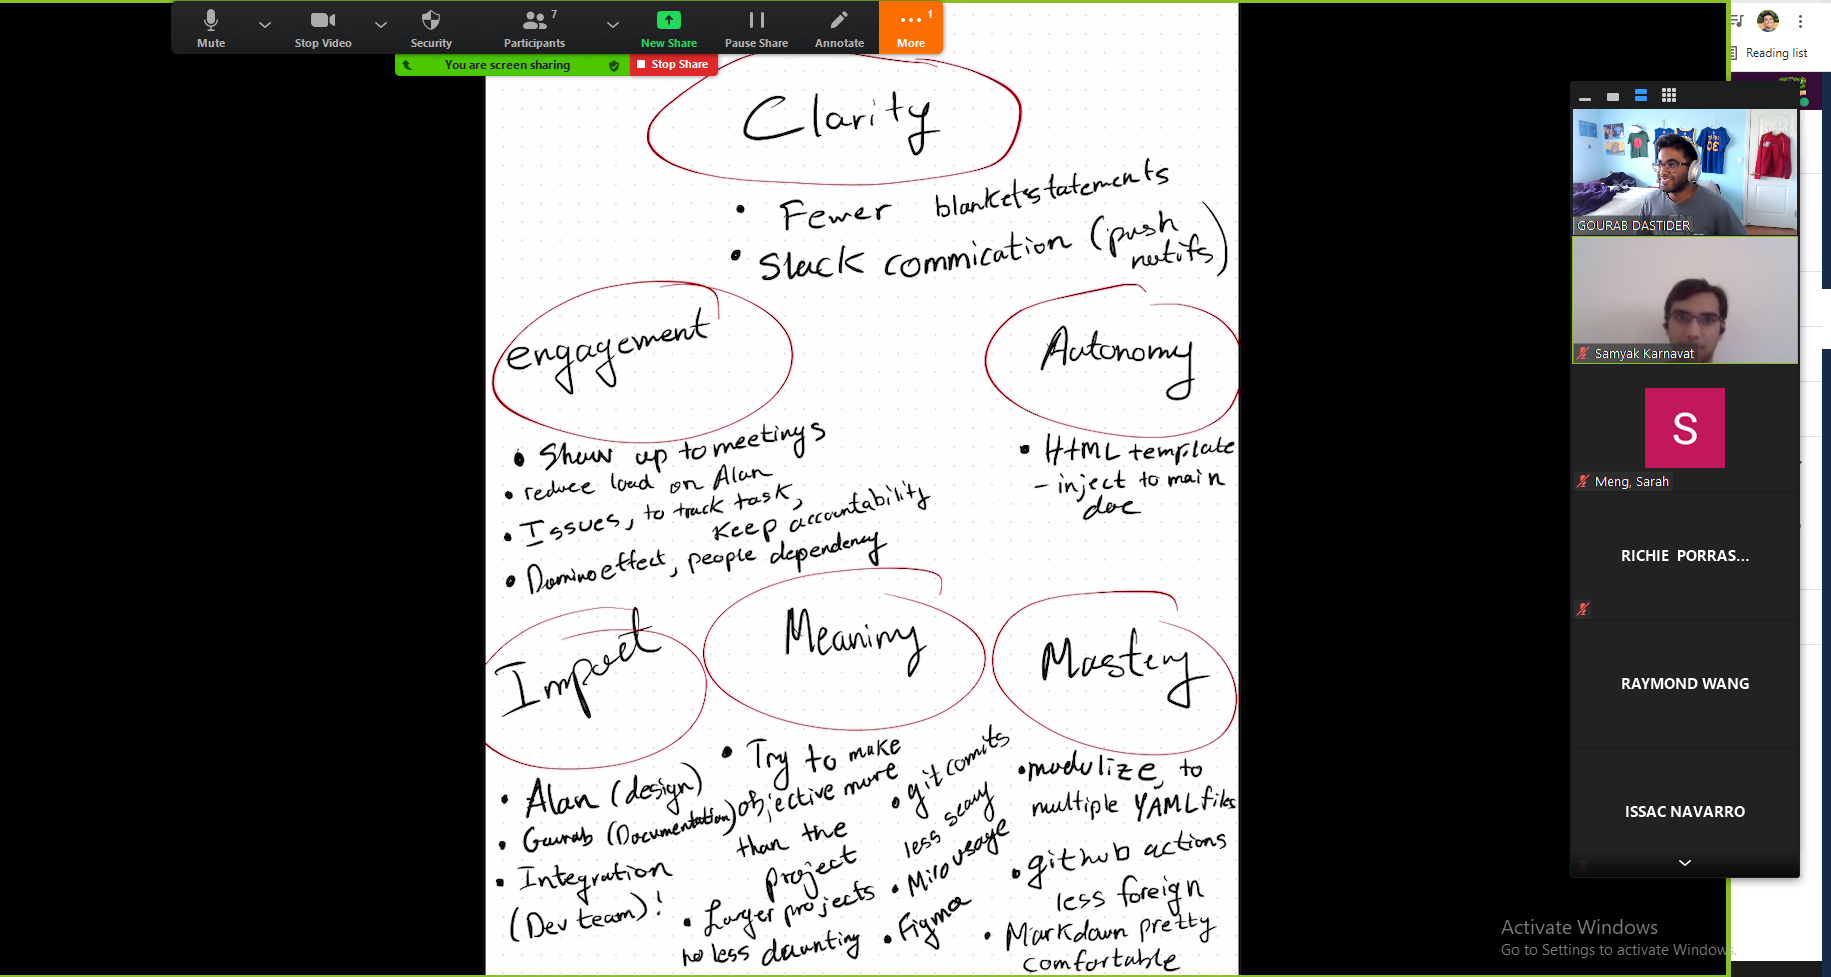 Mute
Stop Video
Security
Participants
7
New Share
Pause Share
Annotate
More
1
You are screen sharing
Stop Share
Reading list
Clarity
• Fewer blanket statements
• Slack commication (push
notifs)
engagement
• Show up to meetings
• reduce load on Alan
• Issues, to track task,
Keep accountability
• Domino effect, people dependency
Autonomy
• HTML template
- inject to main
doc
Impact
• Alan (design)
• Gourab (Documentation)
• Integration
(Dev team)!
Meaning
• Try to make
objective more
than the
project
• Larger projects
no less daunting
• git comits
less scary
• Miro usage
• Figma
Mastery
• modulize, to
multiple YAML files
• github actions
less foreign
• Markdown pretty
comfortable
GOURAB DASTIDER
Samyak Karnavat
S
Meng, Sarah
RICHIE PORRAS...
RAYMOND WANG
ISSAC NAVARRO
Activate Windows
Go to Settings to activate Windows.